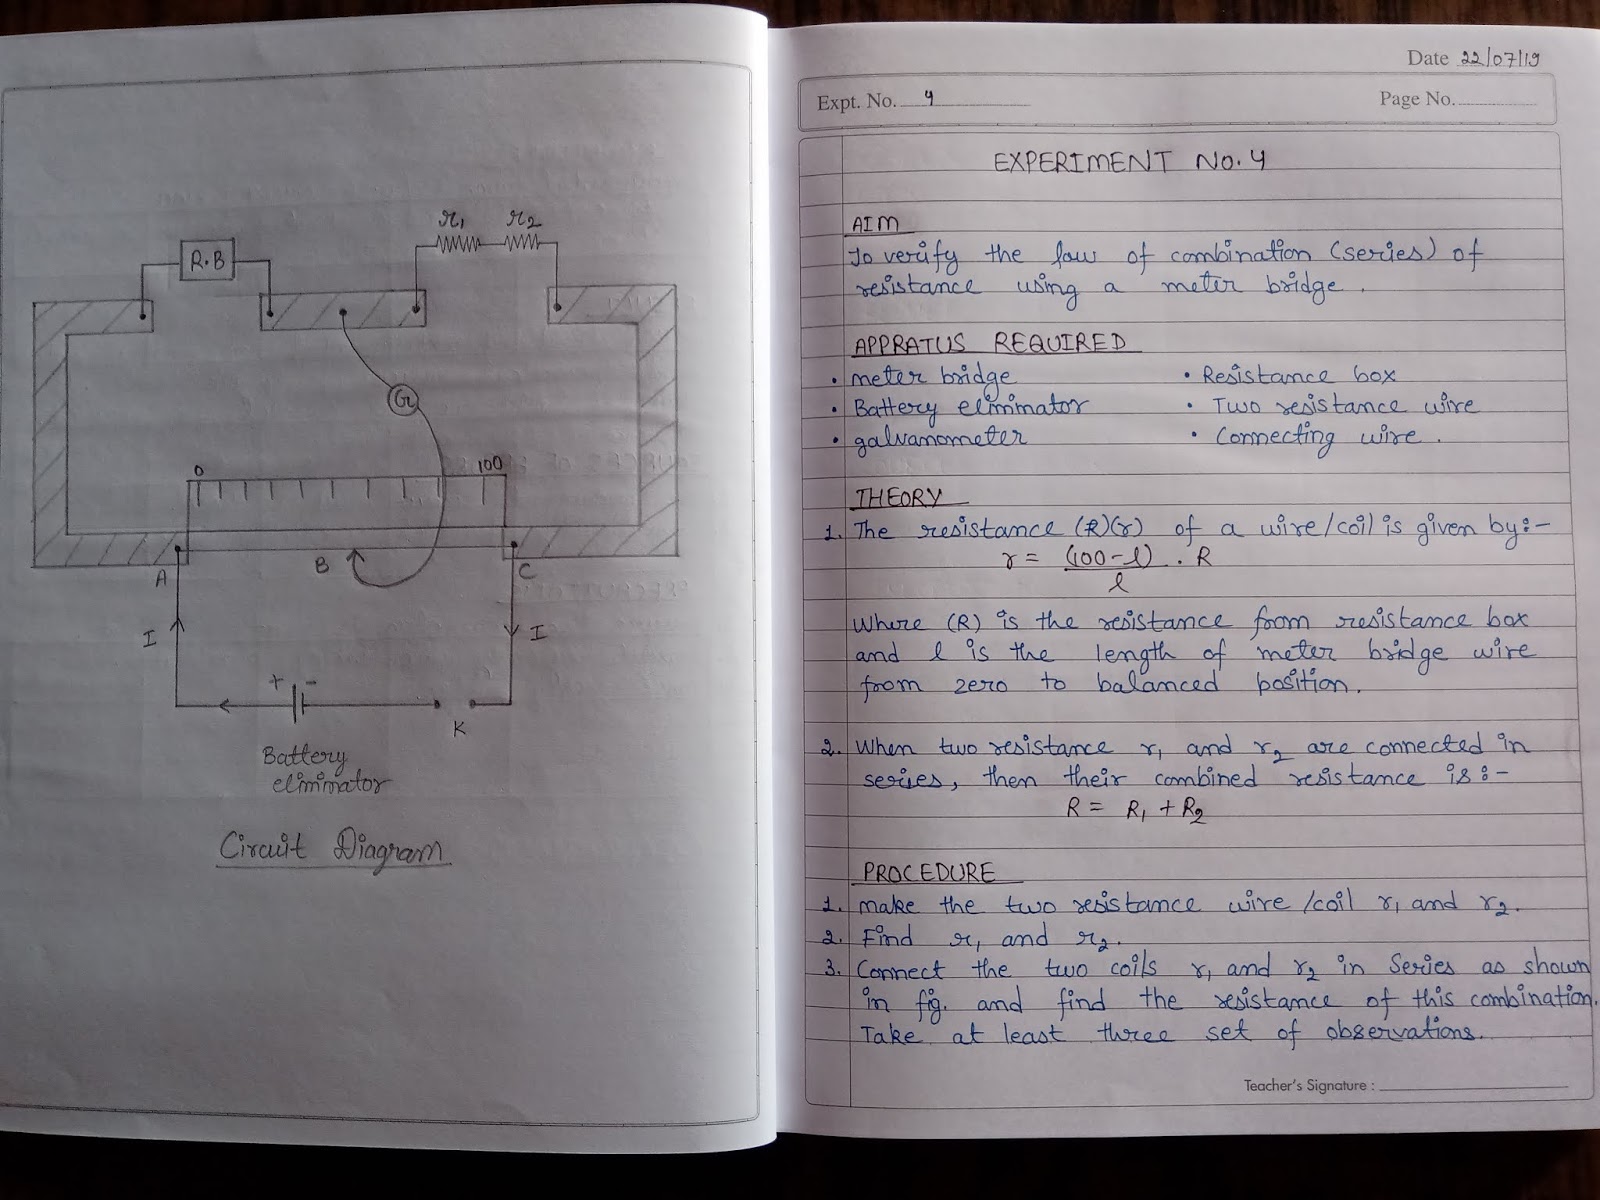 r1 r2
R.B
G
0 100
A B C
I I
+ -
K
Battery
eliminator
Circuit Diagram
Date 22/07/19
Expt. No. 4 Page No.
EXPERIMENT No. 4
AIM
To verify the law of combination (series) of
resistance using a meter bridge.
APPRATUS REQUIRED
• meter bridge • Resistance box
• Battery eliminator • Two resistance wire
• galvanometer • Connecting wire.
THEORY
1. The resistance (R)(r) of a wire/coil is given by:-
r = (100-l) . R
l
Where (R) is the resistance from resistance box
and l is the length of meter bridge wire
from zero to balanced position.
2. When two resistance r1 and r2 are connected in
series, then their combined resistance is:-
R = R1 + R2
PROCEDURE
1. make the two resistance wire/coil r1 and r2.
2. Find r1 and r2.
3. Connect the two coils r1 and r2 in Series as shown
in fig. and find the resistance of this combination.
Take at least three set of observations.
Teacher's Signature :